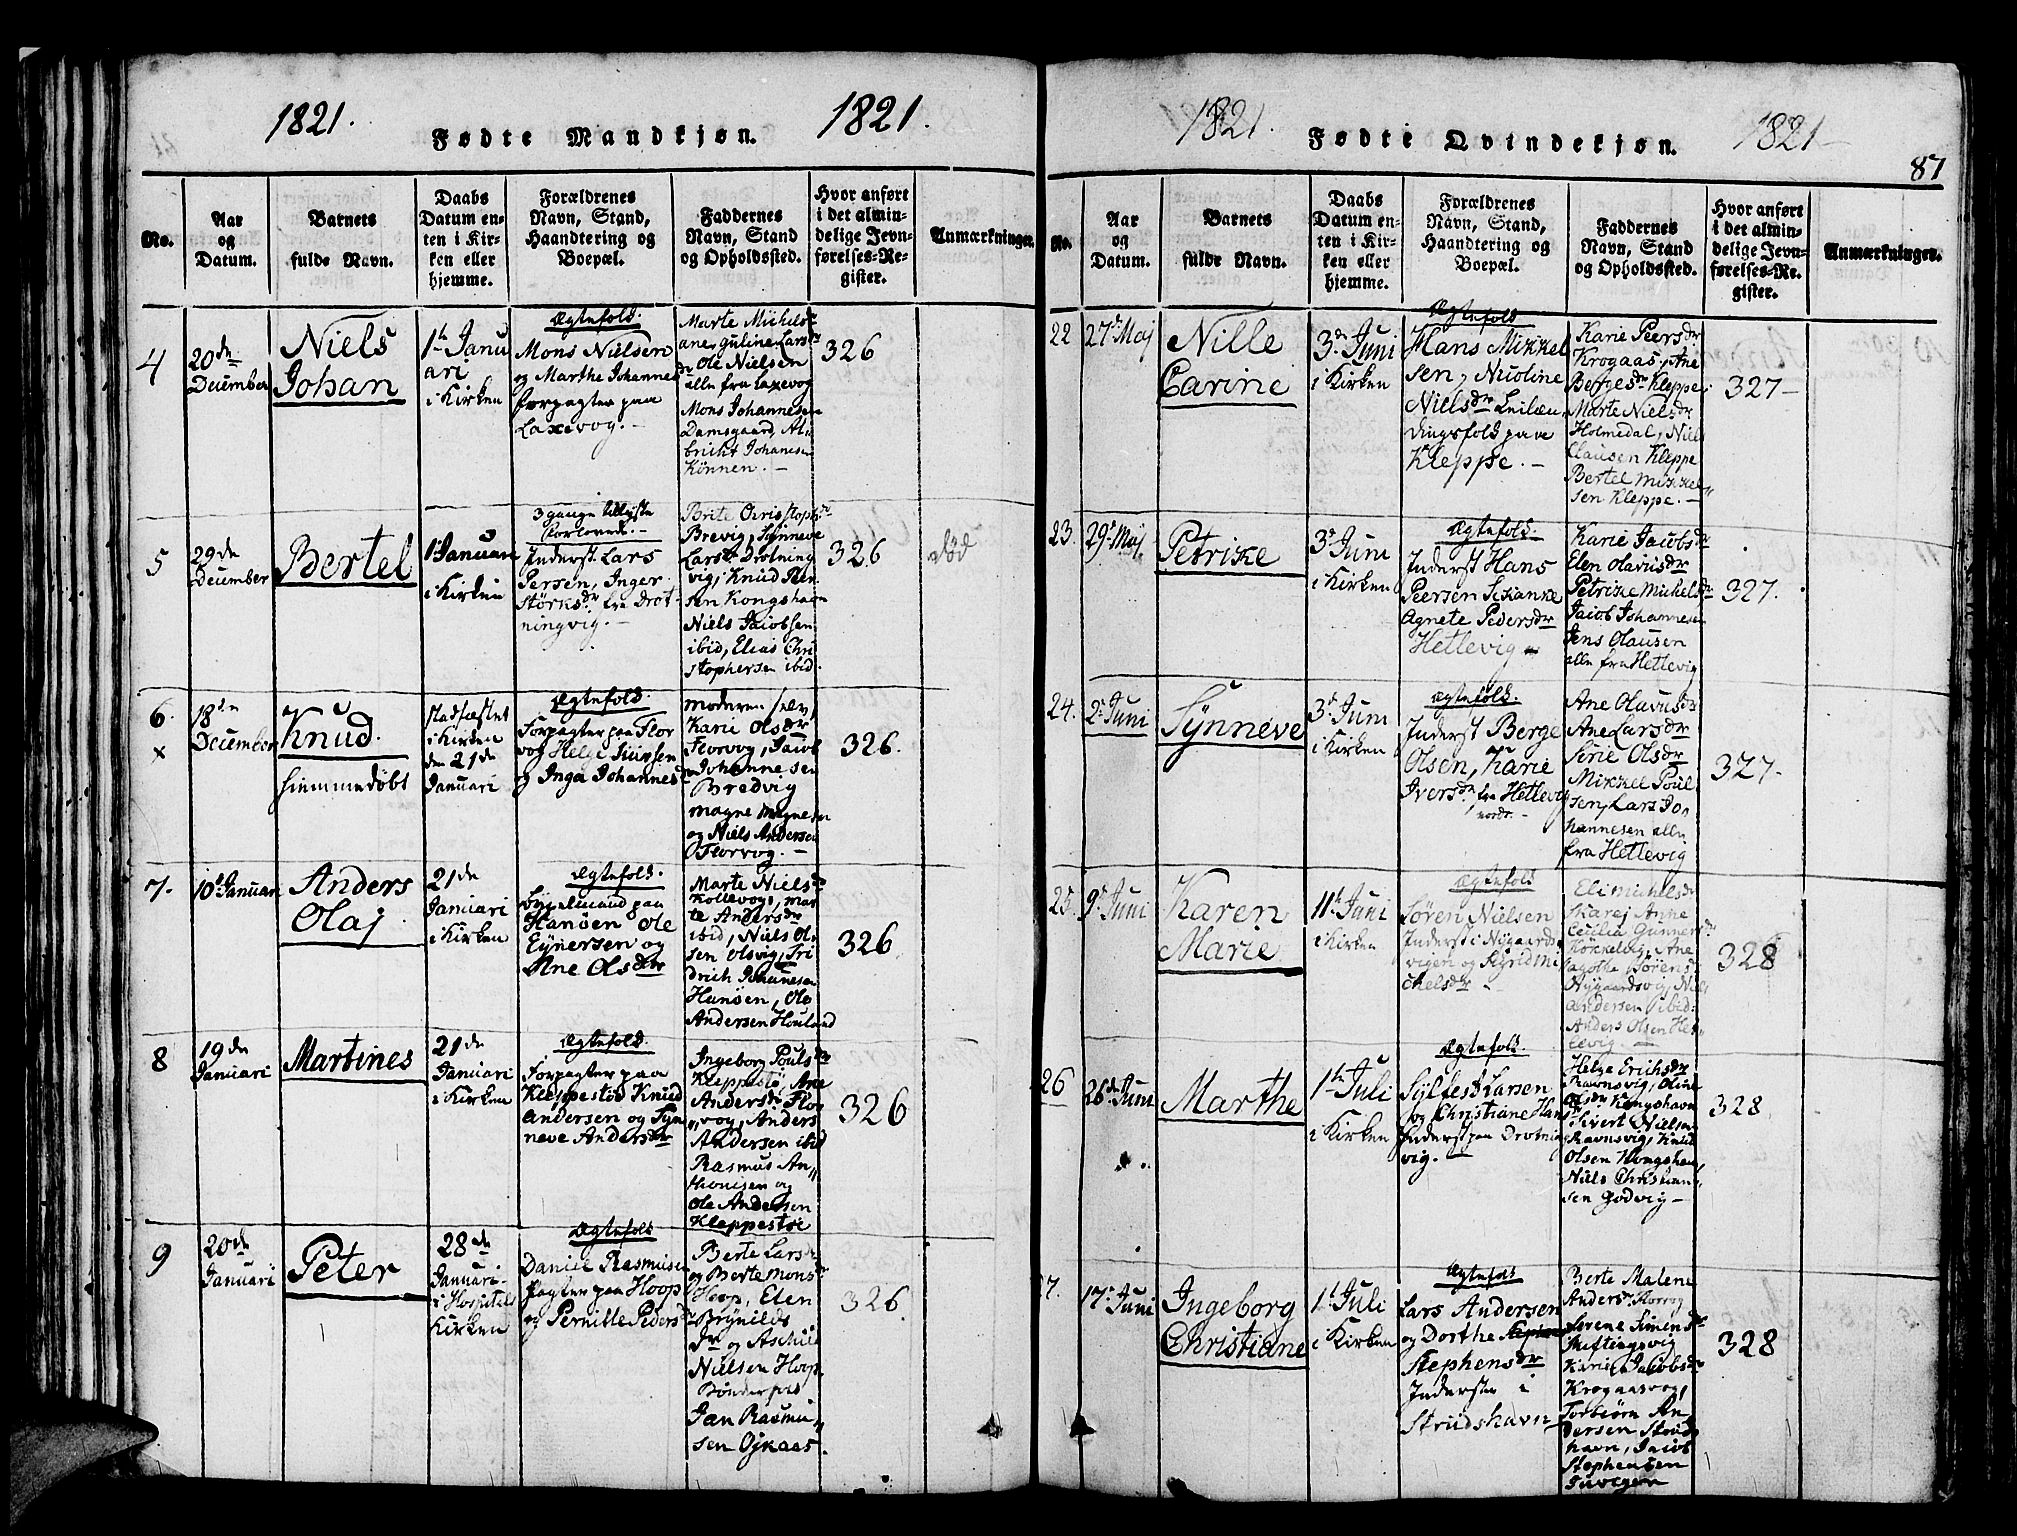 1821.
Fødte Mandkjøn.
1821.
No.
Aar
og
Datum.
Barnets
fulde Navn.
Daabs
Datum en-
ten i Kir-
ken eller
hjemme.
Forældrenes
Navn, Stand,
Haandtering og
Boepæl.
Faddernes
Navn, Stand
og Opholdssted.
Hvor anført
i det almin-
delige Jevn-
førelses-Re-
gister.
Anmærkninger.
4
20de
December
Niels
Johan
1te Janu
ari
i Kirken
Ægtefolk.
Mons Nielsen
og Marthe Johannes
dr
forpagter paa
Laxevog.
Marte Michels
Ole Nielsen
alle fra Laxevog
Mons Johannesen
Damsgaard, Al
bricht Johannesen
Kønnen.
326
5
29de
December
Bertel
1 Januari
i Kirken
3 gange tillyste
Forlovede.
Inderst Lars
Persen, Inger
Størksdr fra Drot-
ningvig.
Brite Christophdr
Brevig, Sønneve
Larsdr Drotning
vig, Knud Peer
sen Kongshavn
Niels Jacobsen
ibid, Elias Chri
stophersen ibid.
326
død
6.
x
18de
December
Knud.
hiemmedøbt
stadfæstet
i Kirken
den 21de
Januari
Ægtefolk.
Forpagter paa Flor
vog Helge Knudsen
og Inga Johannesdr
moderen selv,
Karie Olsdr
Florvog, Jacob
Johannesen
Bredvig
magne magnesen
og Niels Andersen
Florvog.
326.
7.
10de Januari
Anders
Olaj
21de
Januari
i Kirken
Ægtefolk.
Hanøen Ole
Eynersen og
Ane Olsdr
Marte Nielsdr
Kollevog, mar
te Andersdr
ibid, Niels Ol
sen Olsvig, Fri
drich Johannesen
Hanøen, Ole
Andersen Houland
326
8
19de
Januari
Martines
21de
Januari
i Kirken
Ægtefolk.
Forpagter paa
Kleppestøe Knud
Andersen og Syn
neve Andersdr
Ingeborg Poulsdr
Kleppestø, Ane
Andersdr Flor
vog, Anders
Andersen ibid
Rasmus An
thonisen og
Ole Andersen
Kleppestøe
326
9
20de
Januari
Peter
28de
Januari
i Hospitals
Kirken
Ægtefolk
Daniel Rasmusen
Pagter paa Hoop
og Pernille Pedersdr
Berte Larsdr
og Berte Monsdr
Hoop, Elen
Brynilds
dr og Aschild
Nielsen Hoop
Bønderfolk
Jan Rasmu
sen Ojkaas.
326
1821.
Fødte Qvindekjøn.
1821
87
No.
Aar
og
Datum.
Barnets
fulde Navn.
Daabs
Datum en-
ten i Kir-
ken eller
hjemme.
Forældrenes
Navn, Stand,
Haandtering og
Boepæl.
Faddernes
Navn, Stand
og Opholdssted.
Hvor anført
i det almin-
delige Jevn-
førelses-Re-
gister.
Anmærkninger.
22
27de Maj
Nille
Carine
3de Juni
i Kirken
Ægtefolk
Hans Mikkel
sen, Nicoline
Nielsdr Leilæn
dingsfolk paa
Kleppe.
Karie Peersdr
Krogaas, Ane
Bergesdr Kleppe
Marte Nielsdr
Holmedal, Niels
Clausen Kleppe
Bertel Mikkel
sen Kleppe.
327
23.
29de Maj
Petrike
3de Juni
i Kirken
Ægtefolk.
Inderst Hans
Peersen Skanke
Agnete Pedersdr
Hetlevig
Karie Jacobsdr
Elen Olavusdr
Petrike Michelsdr
Jacob Johannesen
Jens Olausen
alle fra Hetlevig
327.
24.
2de Juni
Synneve
3de Juni
i Kirken
Ægtefolk.
Inderst Berge
Olsen, Karie
Iversdr fra Hetlevig
nordr.
Ane Olavusdr
Ane Larsdr
Sirie Olsdr
Mikkel Poul
sen, Lars Jo
hannesen alle
fra Hetlevig
327.
25.
9de Juni
Karen
Marie
11te Juni
i Kirken
Ægtefolk
Søren Nielsen
Inderst i Nygaards
vigen og Sigrid Mi
chelsdr
Eli Michelsdr
Skarej Anne
Cecilia Gunnersdr
Køkkelvig, Ane
agathe Sørensdr
Nygaardsvig, Niels
Andersen ibid:
Anders Olsen Het
levig.
328
26
26de Juni
Marthe
1te Juli
i Kirken
Ægtefolk.
Sylfest Larsen
og Christiane Hans
dr
Inderst paa Drotning
vig.
Helge Erichsdr
Ravnsvig, Oline
Olsdr Kongshavn
Sivert Nielsen
Ravnsvig, Knud
Olsen Kongshavn
Niels Christian
sen Godvig
328
27.
17de Juni
Ingeborg
Christiane
1te Juli
i Kirken
Ægtefolk
Lars Andersen
og Dorthe
Stephensdr
Inderster i
Strudshavn
Berte Malene
Andersdr Storrog
Serene Simensdr
Skiftingsvig
Karie Jacobsdr
Krogaasvog,
Torbiørn An
dersen Struds
havn, Jacob
Stephensen
328